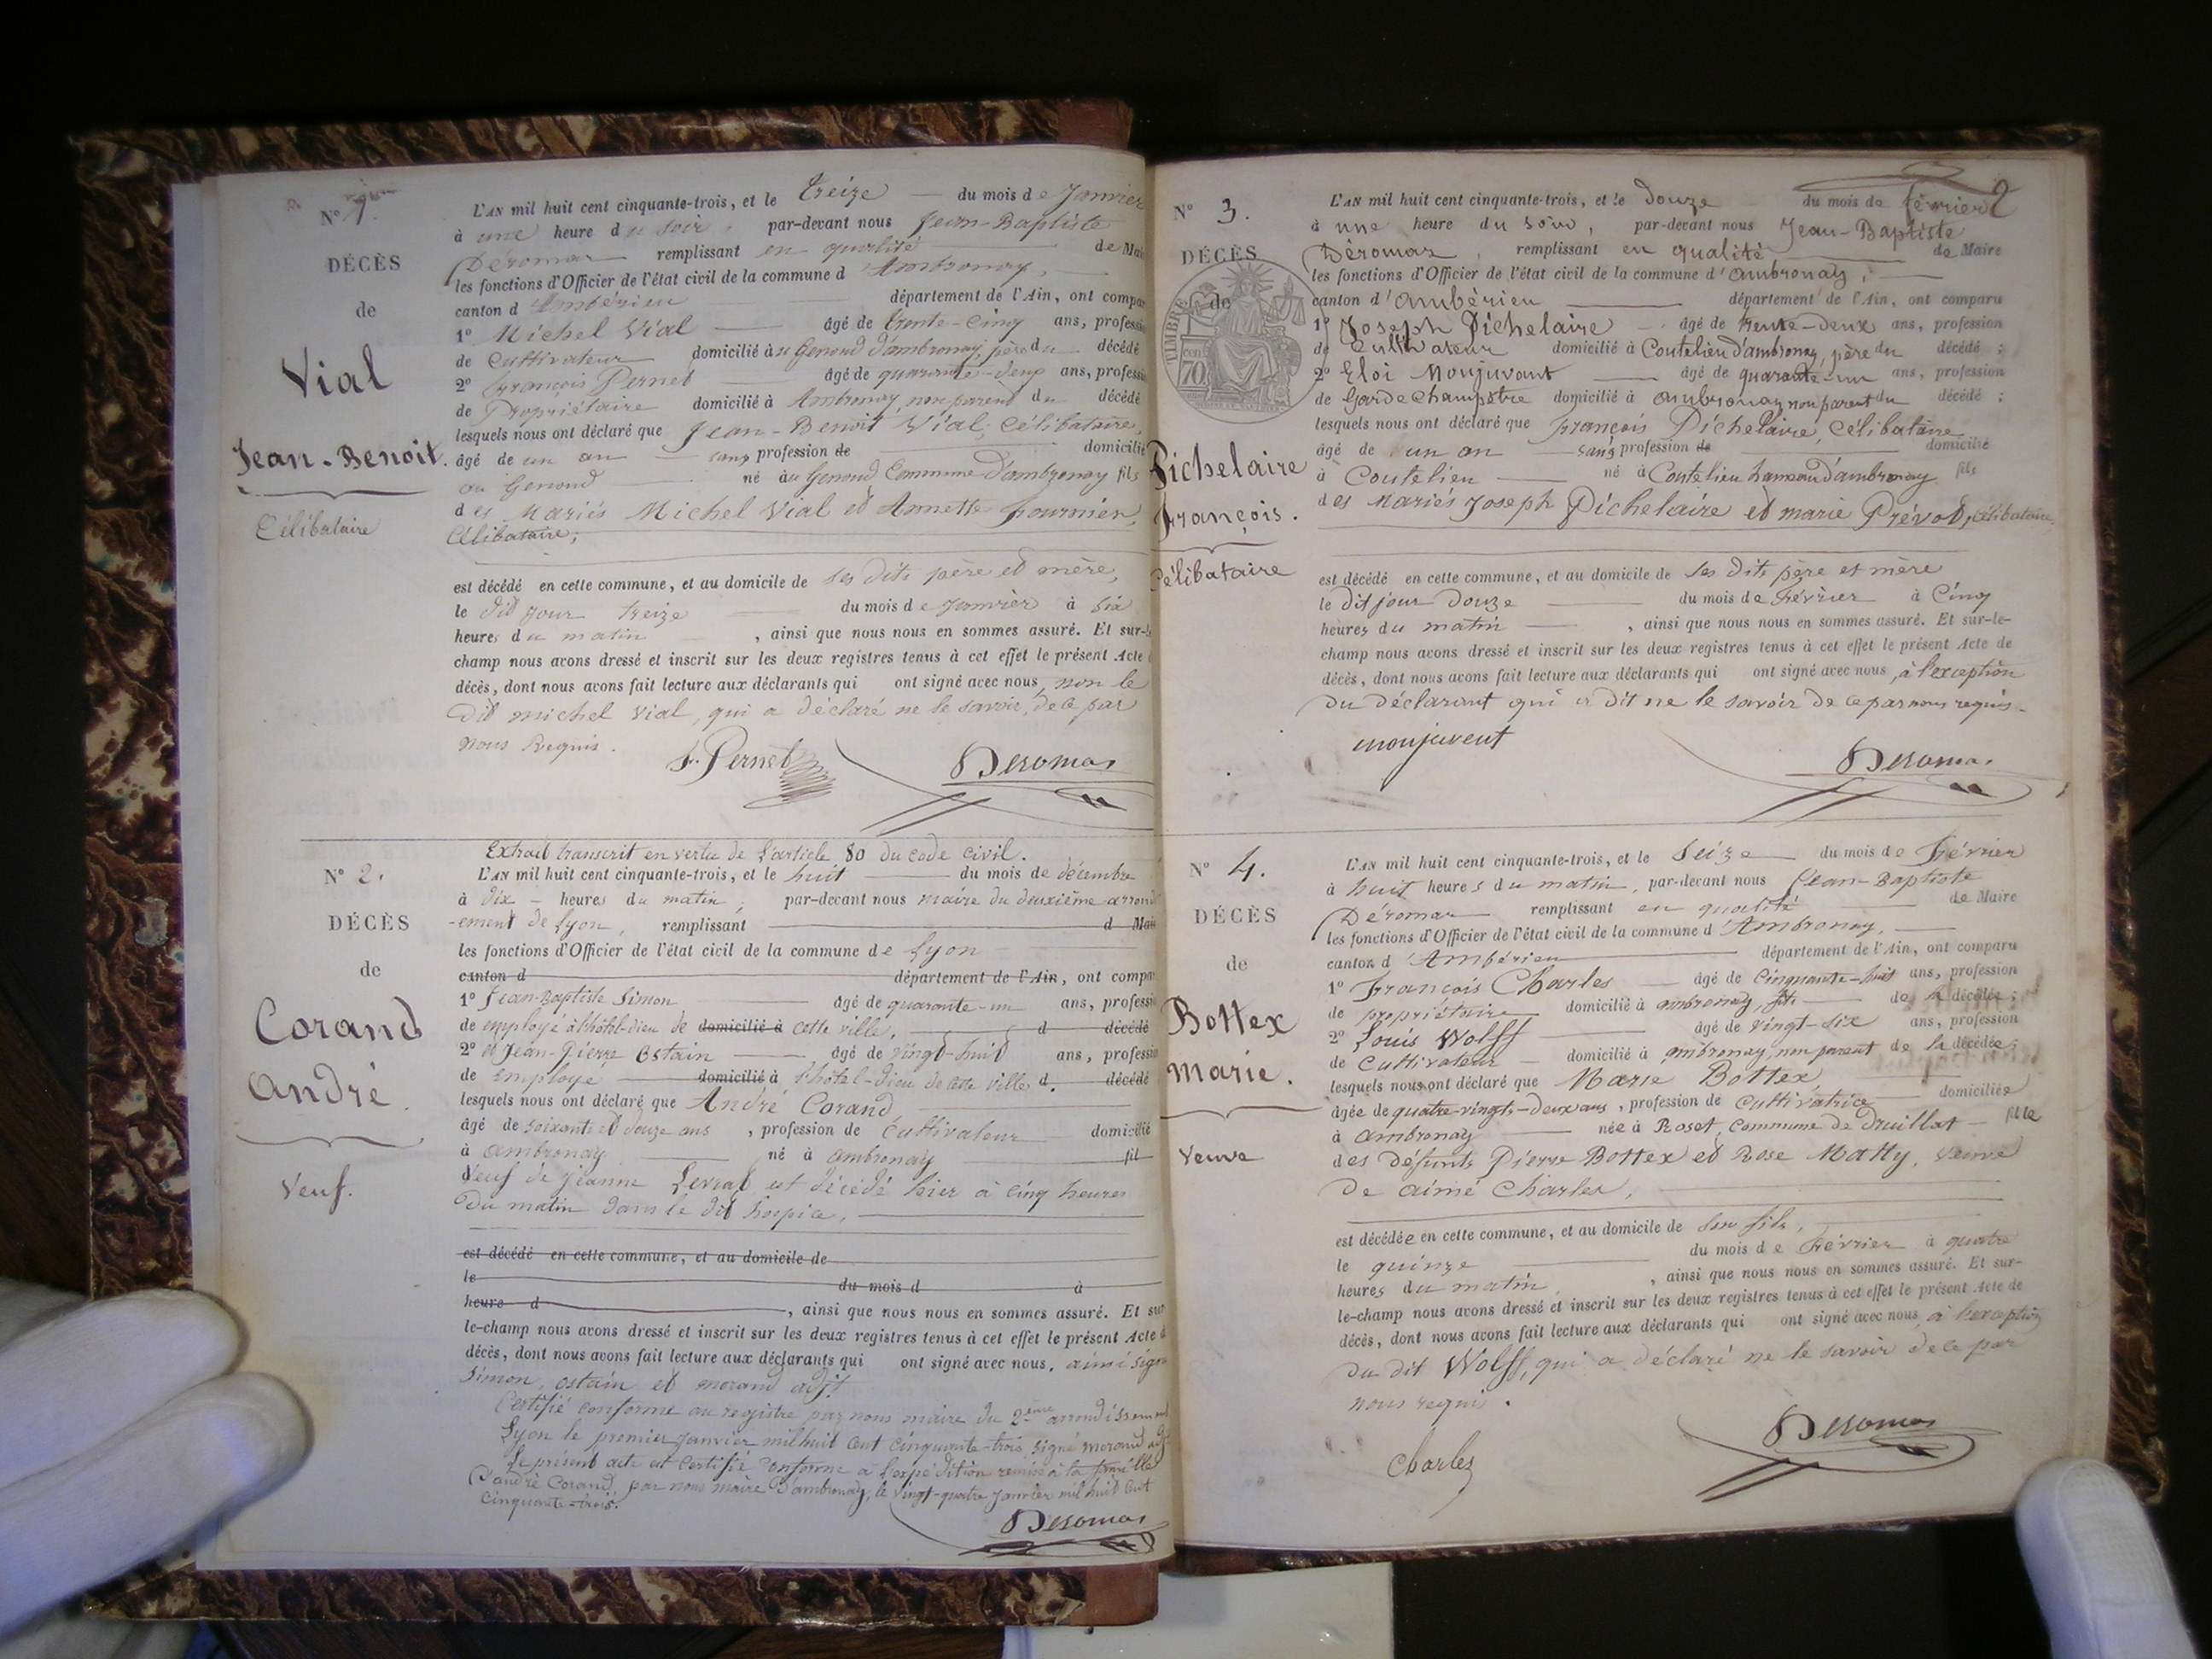 N° 1.
DÉCÈS
de
Vial
Jean-Benoit.
Célibataire
L'AN mil huit cent cinquante-trois, et le treize du mois de Janvier
à une heure du soir, par-devant nous Jean-Baptiste
Déromas remplissant en qualité de Mai
les fonctions d'Officier de l'état civil de la commune d'Ambronay,
canton d'Ambérieu département de l'Ain, ont compar
1° Michel Vial âgé de trente-cinq ans, professi
de Cultivateur domicilié au Genoud d'ambronay, père du décédé
2° François Pernet âgé de quarante-deux ans, professi
de Propriétaire domicilié à Ambronay, non parent du décédé
lesquels nous ont déclaré que Jean-Benoit Vial, Célibataire,
âgé de un an sans profession de domicilié
au Genoud né au Genoud Commune d'ambronay fils
des Mariés Michel Vial et Annette fournier,
Célibataire;
est décédé en cette commune, et au domicile de ses dits père et mère,
le dit jour treize du mois de Janvier à six
heures du matin, ainsi que nous nous en sommes assuré. Et sur-le
champ nous avons dressé et inscrit sur les deux registres tenus à cet effet le présent Acte
décès, dont nous avons fait lecture aux déclarants qui ont signé avec nous, non le
dit michel Vial, qui a déclaré ne le savoir, de ce par
nous Requis.
f. Pernet Deromas
N° 2.
DÉCÈS
de
Corand
André.
Veuf.
Extrait transcrit en vertu de l'article 80 du code civil.
L'AN mil huit cent cinquante-trois, et le huit du mois de décembre
à dix heures du matin, par-devant nous maire du deuxième arrond
-ement de Lyon, remplissant d Mai
les fonctions d'Officier de l'état civil de la commune de Lyon
canton d département de l'Ain, ont compar
1° Jean-Baptiste Simon âgé de quarante-un ans, professi
de employé à l'hôtel-dieu de domicilié à cette ville, d décédé
2° et Jean-Pierre Ostain âgé de vingt-huit ans, professi
de employé domicilié à l'hôtel-dieu de cette ville d. décédé
lesquels nous ont déclaré que André Corand,
âgé de soixante et douze ans, profession de cultivateur domicilié
à ambronay né à ambronay fil
Veuf de Jeanne Levrat est décédé hier à cinq heures
du matin dans le dit hospice.
est décédé en cette commune, et au domicile de
le du mois d à
heure d, ainsi que nous nous en sommes assuré. Et sur
le-champ nous avons dressé et inscrit sur les deux registres tenus à cet effet le présent Acte d
décès, dont nous avons fait lecture aux déclarants qui ont signé avec nous. ainsi signé
Simon, ostain et morand adjt
Certifié conforme au registre par nous maire du 2ème arrondissement
Lyon le premier janvier mil huit cent cinquante-trois signé morand adj
Le présent acte est certifié conforme à l'expédition remise à la famille
d'andré Corand, par nous maire d'ambronay, le vingt-quatre janvier mil huit cent
cinquante-trois.
Deromas
2
N° 3.
DÉCÈS
de
TIMBRE
70
Pichelaire
François.
Célibataire
L'AN mil huit cent cinquante-trois, et le douze du mois de février
à une heure du soir, par-devant nous Jean-Baptiste
Déromas, remplissant en qualité de Maire
les fonctions d'Officier de l'état civil de la commune d'ambronay,
canton d'ambérieu département de l'Ain, ont comparu
1° Joseph Pichelaire âgé de trente-deux ans, profession
de Cultivateur domicilié à Coutelieu d'ambronay, père du décédé;
2° Eloi Monjuvent âgé de quarante-un ans, profession
de Garde champêtre domicilié à ambronay non parent du décédé;
lesquels nous ont déclaré que François Pichelaire, Célibataire
âgé de un an sans profession de domicilié
à Coutelieu né à Coutelieu hameau d'ambronay fils
des Mariés Joseph Pichelaire et marie Prévot, célibataire,
est décédé en cette commune, et au domicile de ses dits père et mère
le dit jour Douze du mois de Février à Cinq
heures du matin, ainsi que nous nous en sommes assuré. Et sur-le-
champ nous avons dressé et inscrit sur les deux registres tenus à cet effet le présent Acte de
décès, dont nous avons fait lecture aux déclarants qui ont signé avec nous, à l'exception
du déclarant qui a dit ne le savoir de ce par nous requis.
monjuvent Deromas
N° 4.
DÉCÈS
de
Bottex
Marie.
Veuve
L'AN mil huit cent cinquante-trois, et le Seize du mois de Février
à huit heures du matin, par-devant nous Jean-Baptiste
Déromas remplissant en qualité de Maire
les fonctions d'Officier de l'état civil de la commune d'Ambronay,
canton d'Ambérieu département de l'Ain, ont comparu
1° François Charles âgé de Cinquante-huit ans, profession
de propriétaire domicilié à ambronay, fils de la décédée;
2° Louis Wolff âgé de vingt-six ans, profession
de Cultivateur domicilié à ambronay, non parent de la décédée;
lesquels nous ont déclaré que Marie Bottex,
âgée de quatre-vingt-deux ans, profession de Cultivatrice domiciliée
à ambronay née à Roset, Commune de Druillat fille
des défunts Pierre Bottex et Rose Matty, veuve
de aimé Charles,
est décédée en cette commune, et au domicile de son fils,
le quinze du mois de Février à quatre
heures du matin, ainsi que nous nous en sommes assuré. Et sur-
le-champ nous avons dressé et inscrit sur les deux registres tenus à cet effet le présent Acte de
décès, dont nous avons fait lecture aux déclarants qui ont signé avec nous à l'exception
du dit Wolff, qui a déclaré ne le savoir de ce par
nous requis.
Charles Deromas